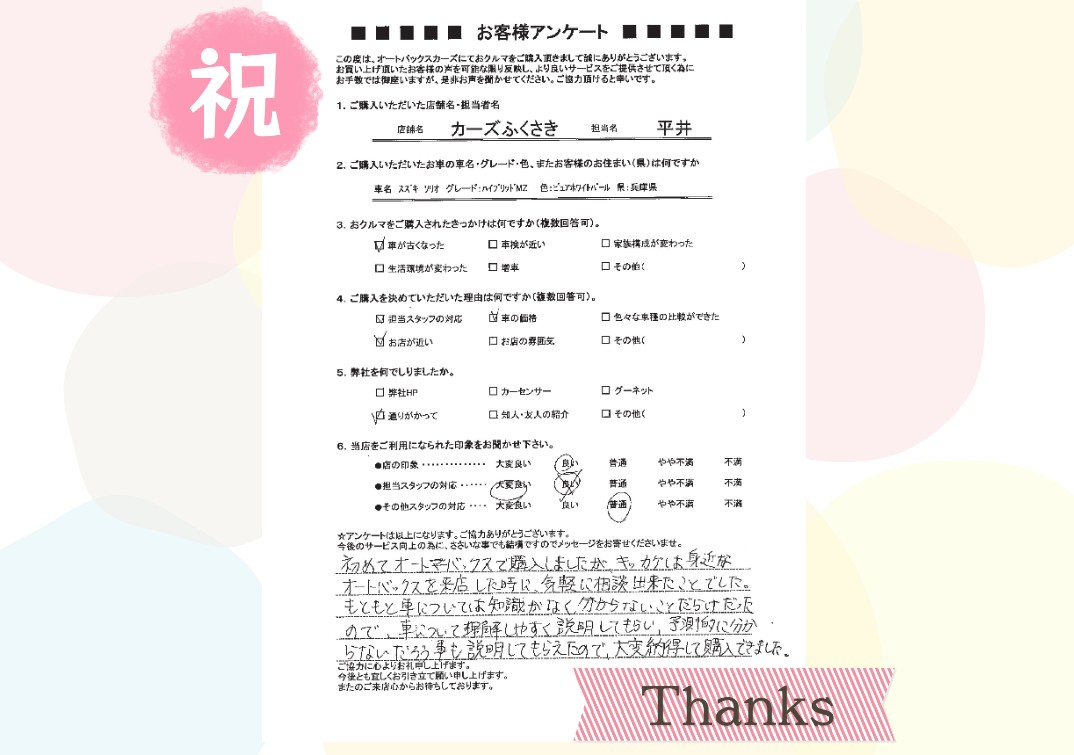 祝
■ ■ ■ ■ ■ お客様アンケート ■ ■ ■ ■ ■
この度は、オートバックスカーズにておクルマをご購入頂きまして誠にありがとうございます。
お買い上げ頂いたお客様の声を可能な限り反映し、より良いサービスをご提供させて頂く為に
お手数では御座いますが、是非お声を聞かせてください。ご協力頂けると幸いです。
1．ご購入いただいた店舗名・担当者名
店舗名 カーズふくさき 担当名 平井
2．ご購入いただいたお車の車名・グレード・色、またお客様のお住まい（県）は何ですか
車名 スズキ ソリオ グレード：ハイブリッドMZ 色：ピュアホワイトパール 県：兵庫県
3．おクルマをご購入されたきっかけは何ですか（複数回答可）。
☑ 車が古くなった □ 車検が近い □ 家族構成が変わった
□ 生活環境が変わった □ 増車 □ その他（ ）
4．ご購入を決めていただいた理由は何ですか（複数回答可）。
☑ 担当スタッフの対応 ☑ 車の価格 □ 色々な車種の比較ができた
☑ お店が近い □ お店の雰囲気 □ その他（ ）
5．弊社を何でしりましたか。
□ 弊社HP □ カーセンサー □ グーネット
☑ 通りがかって □ 知人・友人の紹介 □ その他（ ）
6．当店をご利用になられた印象をお聞かせ下さい。
●店の印象・・・・・・・・・・・・・・ 大変良い 良い 普通 やや不満 不満
●担当スタッフの対応・・・・・・ 大変良い 良い 普通 やや不満 不満
●その他スタッフの対応・・・・ 大変良い 良い 普通 やや不満 不満
☆アンケートは以上になります。ご協力ありがとうございます。
今後のサービス向上の為に、ささいな事でも結構ですのでメッセージをお寄せくださいませ。
初めてオートバックスで購入しましたが、キッカケは身近な
オートバックスを来店した時に、気軽に相談出来たことでした。
もともと車については知識がなく分からないことだらけだった
ので、車について理解しやすく説明してもらい、予測的に分か
らないだろう事も説明してもらえたので、大変納得して購入できました。
ご協力に心よりお礼申し上げます。
今後とも宜しくお引き立て願い申し上げます。
またのご来店心からお待ちしております。
Thanks